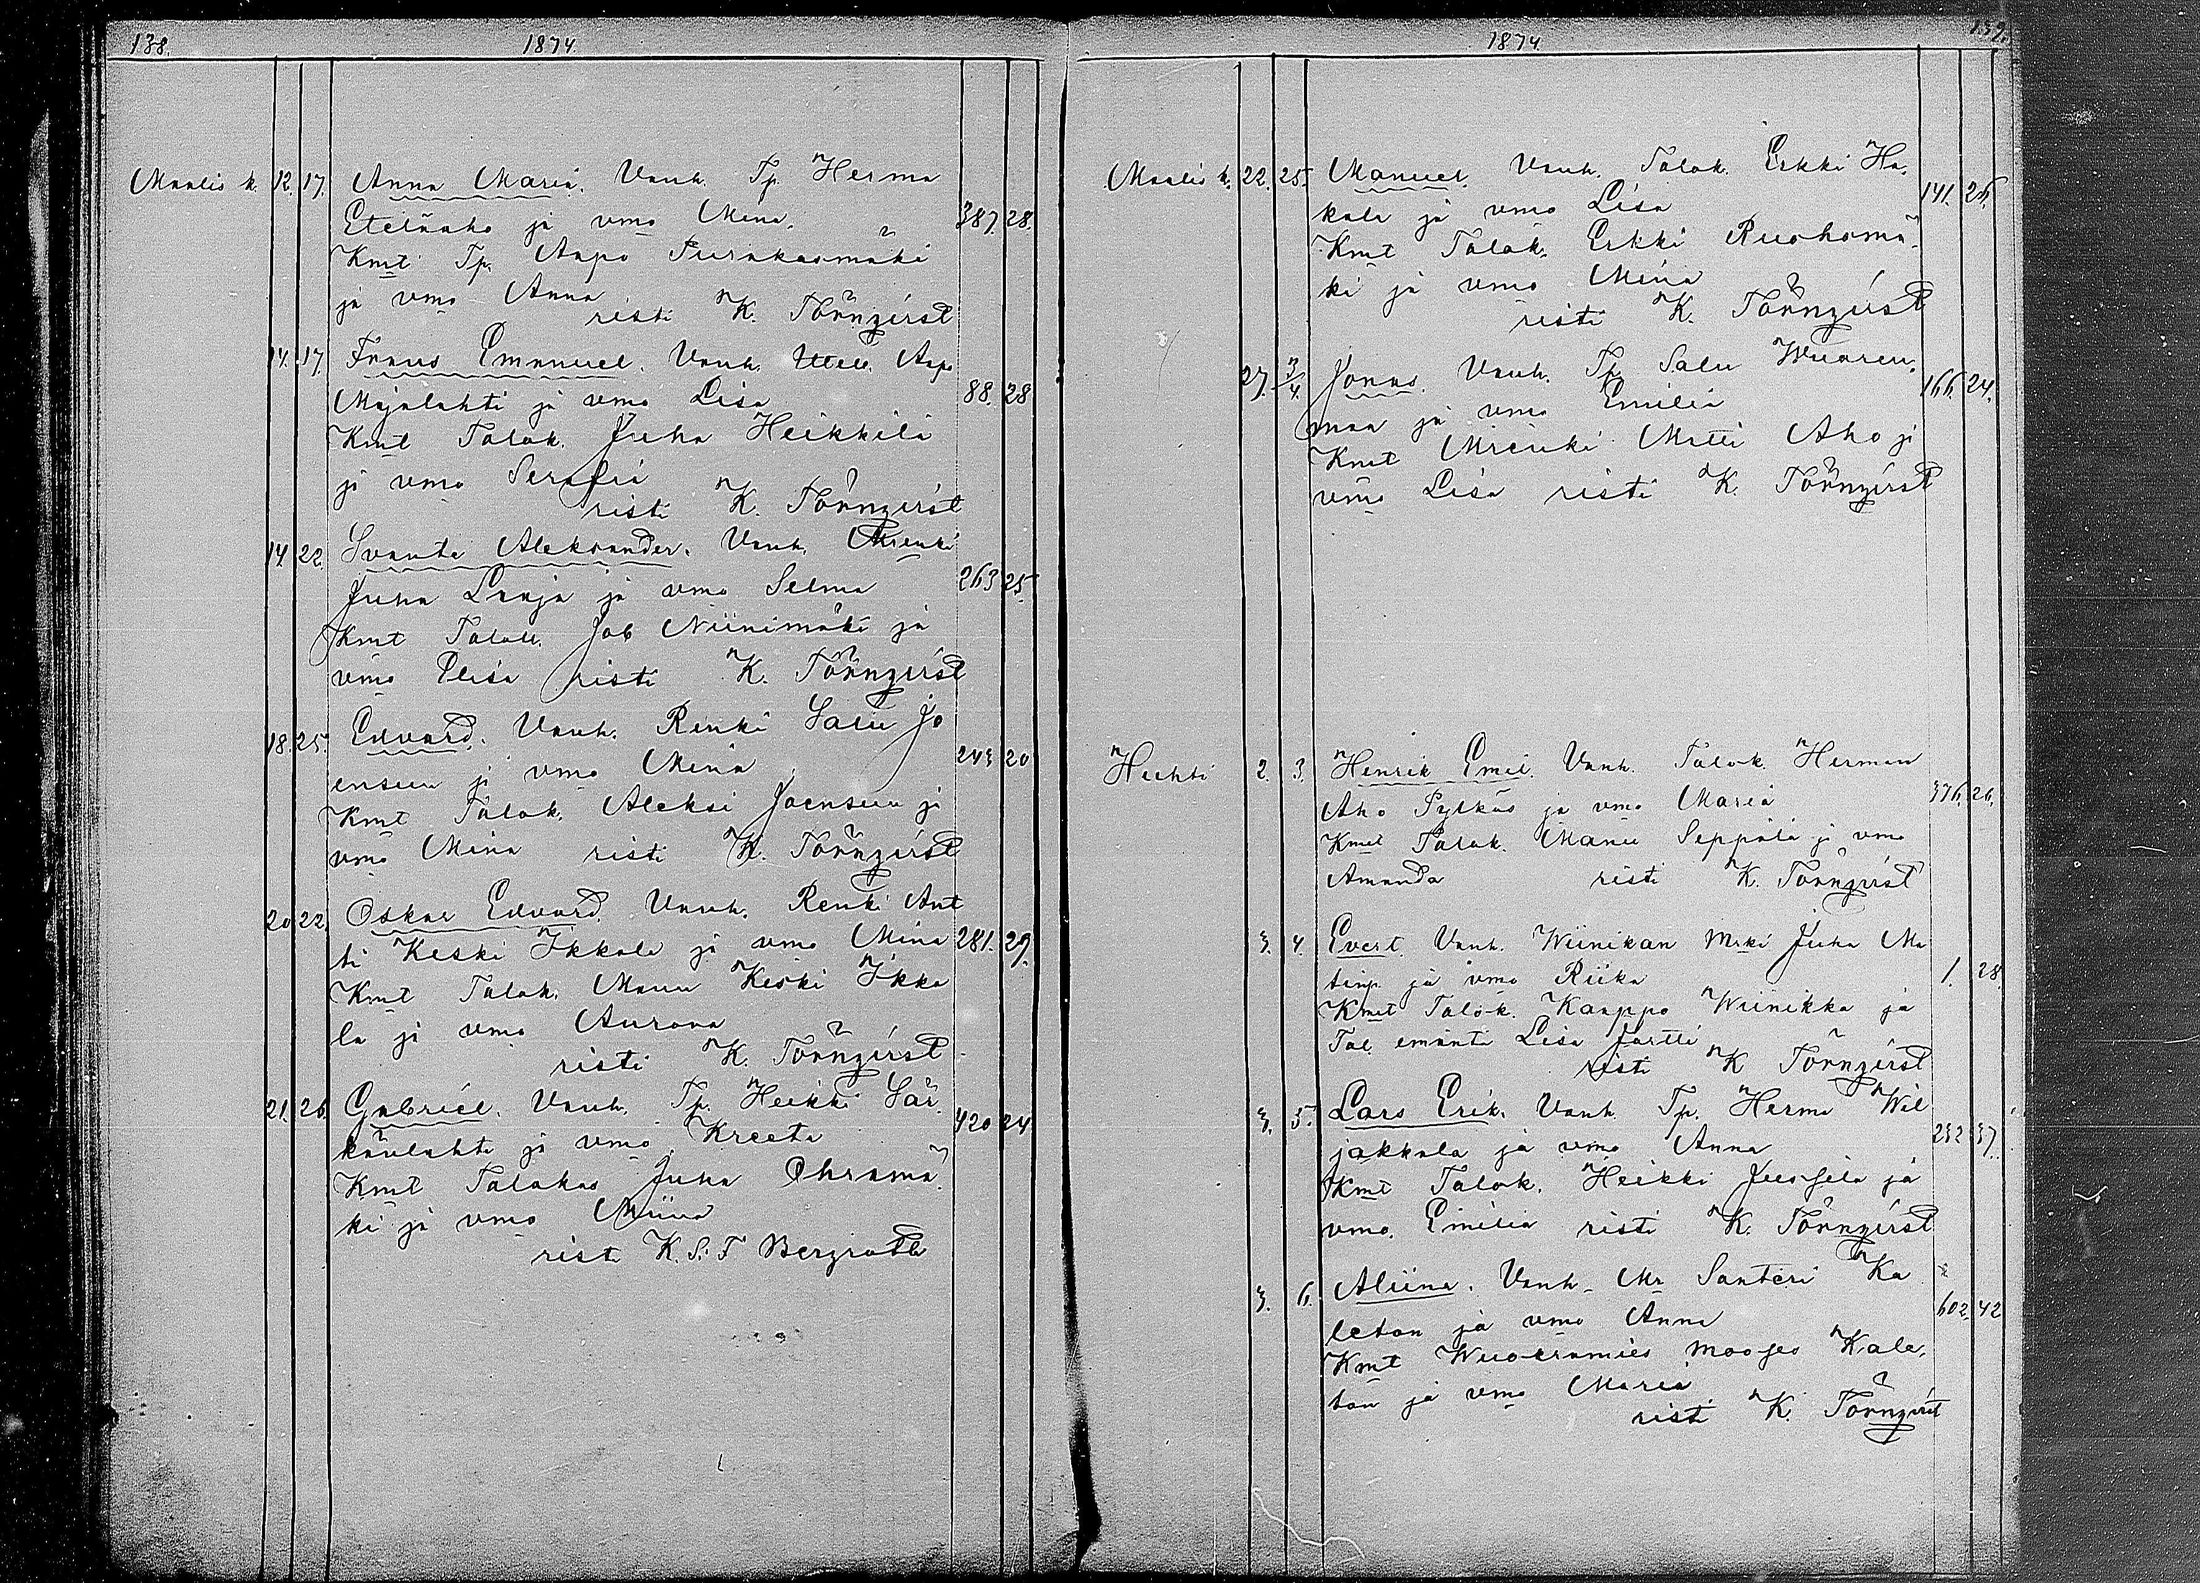 138. 1874
Maalis k. 12. 17. Anna Maria. Vanh. Tp. Herma
Eteläaho ja vmo Mina. 387 28.
Kmt Tp. Aapo
ja vmo Anna
risti K. Törnqvist
14. 17. Frans Emanuel. Vanh. Aapo
Majalahti ja vmo Lisa 88. 28
Kmt Talok. Juha Heikkilä
ja vmo Serafia
risti K. Törnqvist
14. 22. Svante Aleksander. Vanh. Mrenki
Juha Laaja ja vmo Selma 263 25
Kmt Talok. Job Niinimäki ja
vmo Elisa risti K. Törnqvist
18. 25. Edvard. Vanh. Renki Salu Jo
ensuu ja vmo Mina 243 20
Kmt Talok. Aleksi Joensuu ja
vmo Mina risti K. Törnqvist
20 22. Oskar Edvard. Vanh. Renki Ant
ti Keski Ikkala ja vmo Mina 281. 29.
Kmt Talok. Manu Keski Ikka
la ja vmo Aurora
risti K. Törnqvist
21. 26. Gabriel. Vanh. Tp. Heikki Sär
künlahti ja vmo Kreeta 420 24
Kmt Talokas Juha Ohramä
ki ja vmo Miina
rist. K. S. F Bergroth
1874 139.
Maalis k. 22. 25. Manuel. Vanh. Talok. Erkki Ha
kala ja vmo Lisa 141. 26.
Kmt Talok. Erkki Ruohomä
ki ja vmo Mina
risti K. Törnqvist
27. 3/4. Jonas. Vanh. Tp. Salu Wuoren
maa ja vmo Emilia 166. 24.
Kmt Mrenki Matti Aho ja
vmo Lisa risti K. Törnqvist
Huhti 2. 3. Henrik Emil. Vanh. Talok. Herman
Aho Pylkäs ja vmo Maria 376. 26.
Kmt Talok. Manu Seppälä ja vmo
Amanda risti K. Törnqvist
3. 4. Evert. Vanh. Wiinikan Mrki Juha Ma
tinp. ja vmo Riika 1. 28.
Kmt Talok. Kaappo Wiinikka ja
Tal. emäntä Lisa Jortti
risti K Törnqvist
3. 5. Lars Erik. Vanh. Tp. Herma Wil
jakkala ja vmo Anna 232 37.
Kmt Talok. Heikki Jussila ja
vmo. Emilia risti K. Törnqvist
3. 6. Aliina. Vanh. Mr Santeri Ka
leton ja vmo Anna 602. 42
Kmt Wuokramies Mooses Kale
ton ja vmo Maria
risti K. Törnqvist